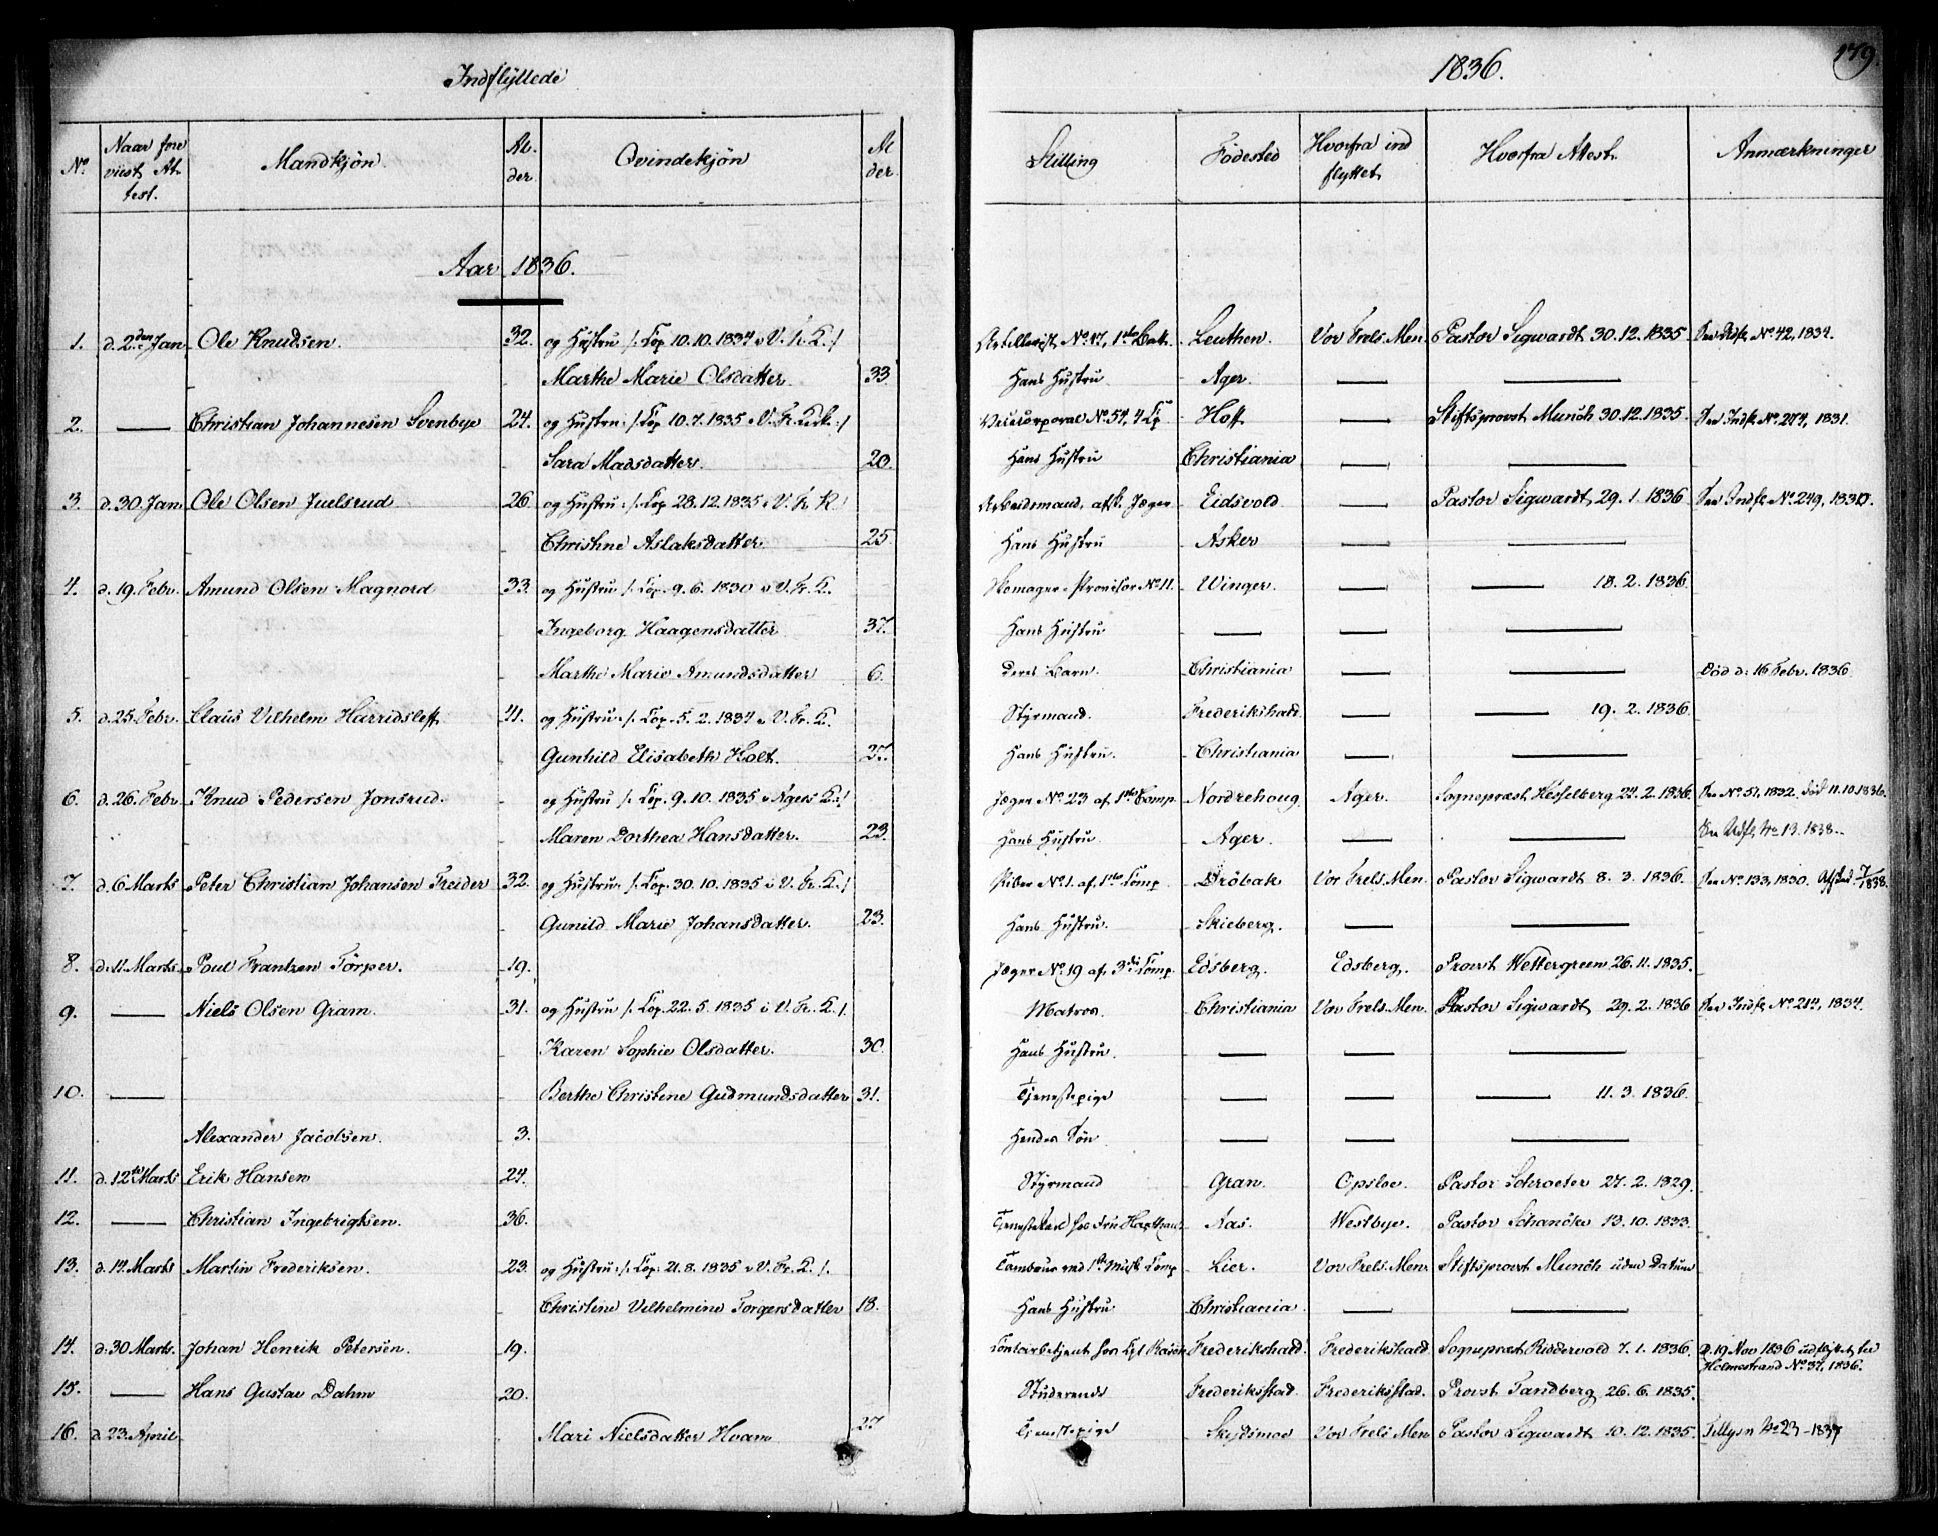 Indflyttede
1836.
179
No
Naar fore
viist At
test.
Mandkjön.
Al.
der
Qvindekjön
Al
der.
Stilling
Födested
Hvorfra ind
flyttet
Hvorfra Attest.
Anmærkninger
Aar 1836.
1. d. 2den Jan Ole Knudsen. 32. og Hustru /: Cop. 10.10.1834 i V. Fr. K. :/ Artillerist No. 17, 1ste Batt. Leuthen. Vor Frels. Men. Pastor Sigwardt 30.12.1835. See Indfl. No. 42, 1834.
Marthe Marie Olsdatter. 33. Hans Hustru Ager. — —
2. — Christian Johannesen Svenbye 24. og Hustru /: Cop. 10.7.1835 i V. Fr. Kirk. :/ Vicecorporal No. 54, 4 Cp. Hoff — Stiftsprovst Munch 30.12.1835. See Indfl. No. 274, 1831.
Sara Madsdatter. 20. Hans Hustru Christiania — —
3. d. 30 Jan. Ole Olsen Juelsrud 26. og Hustru /: Cop. 28.12.1835 i V. Fr. K :/ Arbeidsmand, afsk. Jæger Eidsvold — Pastor Sigwardt 29.1.1836 See Indfl. No. 249, 1830.
Christine Aslaksdatter. 25. Hans Hustru Asker — —
4. d. 19. Febr. Amund Olsen Magnord 33. og Hustru /: Cop. 9.6.1830 i V. Fr. K. Skomager-Provisor No 11. Winger. — — 18.2.1836
Ingeborg Haagensdatter 37. Hans Hustru — — —
Marthe Marie Amundsdatter 6. Deres Barn. Christiania — — Död d. 16 Febr. 1836
5. d. 25. Febr. Claus Vilhelm Harridsleff. 41. og Hustru /: Cop. 5.2.1834 i V. Fr. K. Styrmand. Frederikshald. — — 19.2.1836.
Gunhild Elisabeth Holt. 37. Hans Hustru. Christiania — —
6. d. 26. Febr. Knud Pedersen Jonsrud. og Hustru /: Cop. 9.10.1835 i Agers K. :/ Jæger No. 23 af 1ste Comp. Nordrehoug Ager. Sognepræst Hesselberg 24.2.1836. See No. 51, 1832. död 11.10.1836.
Maren Dorthea Hansdatter. 23. Hans Hustru Ager. — — See Udfl. No. 13. 1838.
7. d. 6 Marts Peter Christian Johansen Freider 32. og Hustru /: Cop. 30.10.1835 i V. Fr. K. :/ No. 1. af 1ste Comp Dröbak Vor Frels. Men. Pastor Sigwardt 8.3.1836. See No. 133, 1830. Afsked 7/1838.
Gunild Marie Johansdatter. 23. Hans Hustru. Skieberg. — —
8. d. 11. Marts Poul Frantzen Törper. 19. Jæger No. 19 af 3die Comp. Edsberg. Edsberg. Provst Wettergreen 26.11.1835.
9. — Niels Olsen Gram. 31. og Hustru /: Cop. 22.5.1835 i V. Fr. K. :/ Matros. Christiania Vor Frels. Men. Pastor Sigwardt 29.2.1836 See Indfl. No. 214, 1834.
Karen Sophie Olsdatter. 30. Hans Hustru. — — —
10. — Berthe Christine Gudmundsdatter 31. Tjenestepige — — — 11.3.1836.
Alexander Jacobsen. 3. Hendes Sön — — —
11. d. 12te Marts Erik Hansen 24. Styrmand Gran. Opsloe. Pastor Schroeter 27.2.1829.
12. — Christian Ingebrigtsen. 36. Tjenestekarl hos Fru Aas. Westbye. Pastor Schancke 13.10.1833.
13. d. 14. Marts Martin Frederiksen. 23. og Hustru /: Cop. 21.8.1835 i V. Fr. K. :/ Tambour ved 1ste Musk. Comp Lier. Vor Frels. Men. Stiftsprovst Munch uden Datum
Christine Vilhelmine Torgersdatter 18. Hans Hustru Christiania — —
14. d. 30 Marts. Johan Henrik Petersen. 19. Contorbetjent hos Frederikshald. Frederikshald. Sognepræst Riddervold 7.1.1836. D. 19 Nov 1836 udflyttet til
Holmestrand No. 37, 1836.
15. — Hans Gustav Dahm 20. Studerende Frederiksstad. Frederiksstad. Provst Tandberg 26.6.1835.
16. d. 23. April Mari Nielsdatter Hvam 27 Tjenestepige Skydsmoe Vor Frels Men Pastor Sigwardt 10.12.1835. Tillysn No 23 - 1837